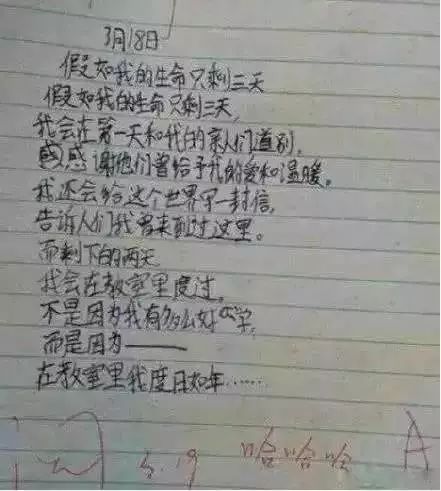 3月18日
假如我的生命只剩三天
假如我的生命只剩三天,
我会在第一天和我的亲人们道别,
感感谢他们曾给予我的爱和温暖。
我还会给这个世界写一封信,
告诉人们我曾来到过这里。
而剩下的两天
我会在教室里度过,
不是因为我有多么好学,
而是因为——
在教室里我度日如年……
阅 3.19 哈哈哈 A